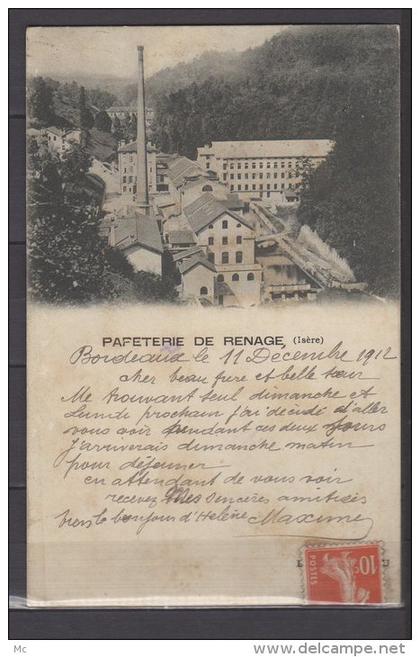 PAPETERIE DE RENAGE (Isère)
Bordeaux le 11 Décembre 1912
cher beau frere et belle sœur
Me trouvant seul dimanche et
Lundi prochain j'ai décidé d'aller
vous voir pendant ces deux jours
j'arriverais dimanche matin
pour déjeuner
en attendant de vous voir
recevez Mes sincères amitiés
le bonjour d'Helène Maxime
10c
POSTES
Mc
© www.delcampe.net